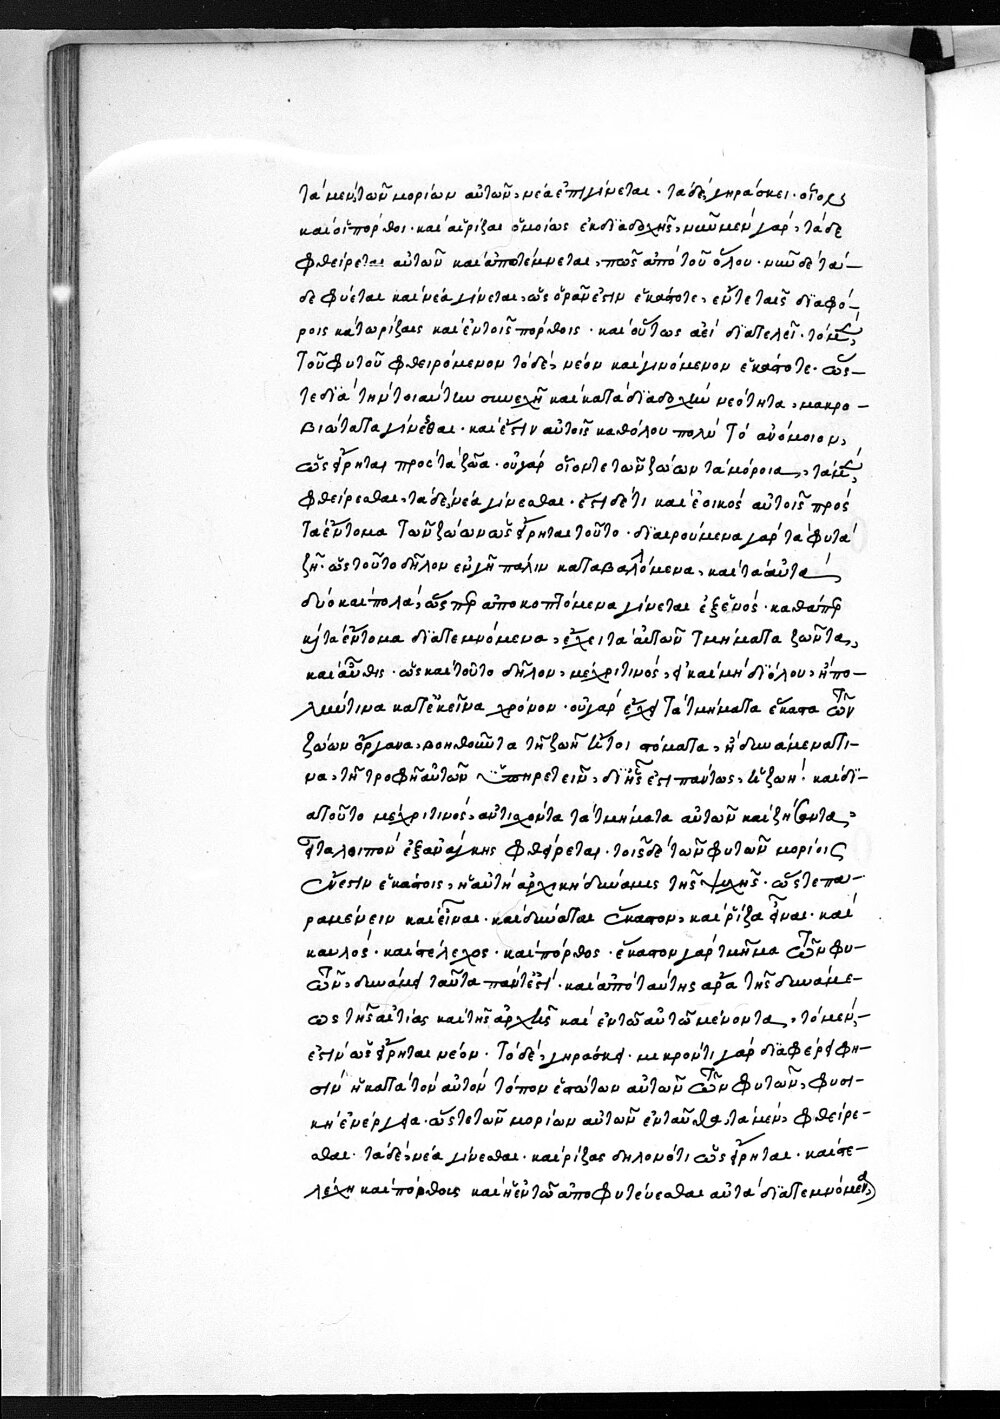 τὰ μὲν τῶν μορίων αὐτῶν, νέα ἐπιγίνεται· τὰ δὲ, γηράσκει· οἷον
καὶ οἱ πόρθοι· καὶ αἱ ῥίζαι ὁμοίως ἐκ διαδοχῆς, νῦν μὲν γὰρ, τάδε
φθείρεται αὐτῶν καὶ ἀποτέμνεται, πως ἀπὸ τοῦ ὅλου· νῦν δὲ ταί-
δε φύεται καὶ νέα γίνεται, ὡς ὁρᾶν ἐστιν ἑκάστοτε, ἔν τε ταῖς διαφό-
ροις κάτω ῥίζαις καὶ ἐν τοῖς πόρθοις· καὶ οὕτως ἀεὶ διατελεῖ· τὸ μὲν,
τοῦ φυτοῦ φθειρόμενον τὸ δὲ, νέον καὶ γινόμενον ἑκάστοτε· ὥς-
τε διὰ τὴν τοιαύτην συνεχῆ καὶ κατὰ διαδοχὴν νεότητα, μακρο-
βιώτατα γίνεσθαι· καὶ ἔστιν αὐτοῖς καθόλου πολὺ τὸ ἀνόμοιον,
ὡς εἴρηται πρὸς τὰ ζῶα· οὐ γὰρ οἷόν τε τῶν ζώων τὰ μόρια, τὰ μὲν,
φθείρεσθαι, τὰ δὲ, νέα γίνεσθαι· ἔστι δέ τι καὶ ἐοικὸς αὐτοῖς πρὸς
τὰ ἔντομα τῶν ζώων ὡς εἴρηται τοῦτο· διαιρούμενα γὰρ τὰ φυτὰ
ζῆ· ὡς τοῦτο δῆλον ἐν γῆ πάλιν καταβαλόμενα, καὶ τὰ αὐτὰ
δύο καὶ πολλὰ, ὥσπερ ἀποκοπτόμενα γίνεται ἐξ ἑνός· καθάπερ
καὶ τὰ ἔντομα διατεμνόμενα, ἔχει τὰ αὐτῶν τμήματα ζῶντα,
καὶ αὖθις· ὡς καὶ τοῦτο δῆλον, μέχρι τινὸς, εἰ καὶ μὴ διόλου, ἢ πο-
λύν τινα κατ' ἐκεῖνα χρόνον· οὐ γὰρ ἔχει τὰ τμήματα ἕκαστα τῶν
ζώων ὄργανα, βοηθοῦντα τῆ ζωῆ ἤτοι στόματα, ἢ δυνάμενά τι-
να, τῆ τροφῆ αὐτῶν ὑπηρετεῖν, δι' ἧς ἐστι πάντως, ἡ ζωή! καὶ δι-
ατοῦτο μέχρι τινὸς, ἀντισχόντα τὰ τμήματα αὐτῶν καὶ ζήσαντα,
εἶτα λοιπὸν ἐξ ἀνάγκης φθείρεται· τοῖς δὲ τῶν φυτῶν μορίοις
ἔνεστιν ἑκάστοις, ἡ αὐτὴ ἀρχικὴ δύναμις τῆς ψυχῆς· ὥστε πα-
ραμένειν καὶ εἶναι· καὶ δύναται ἕκαστον, καὶ ῥίζα εἶναι· καὶ
καυλός· καὶ στέλεχος· καὶ πόρθος· ἕκαστον γὰρ τμῆμα τῶν φυ-
τῶν, δυνάμει ταῦτα πάντ' ἐστὶ· καὶ ἀπὸ ταύτης ἄρα τῆς δυνάμε-
ως τῆς αἰτίας καὶ τῆς ἀρχῆς καὶ ἐν τῶ αὐτῶ μένοντα, τὸ μέν,
ἐστιν ὡς εἴρηται νέον· τὸ δὲ, γηράσκει· μικρόν τι γὰρ διαφέρει φη-
σὶν ἢ κατὰ τὸν αὐτὸν τόπον ἑστώτων αὐτῶν τῶν φυτῶν, φυσι-
κὴ ἐνέργεια· ὥστε τῶν μορίων αὐτῶν ἐνταῦθα, τὰ μὲν, φθείρε-
σθαι· τὰ δὲ, νέα γίνεσθαι· καὶ ῥίζας δηλονότι ὡς εἴρηται· καὶ στε-
λέχη καὶ πόρθοις καὶ ἢ ἐν τῶ ἀποφυτεύεσθαι αὐτὰ διατεμνόμενα,